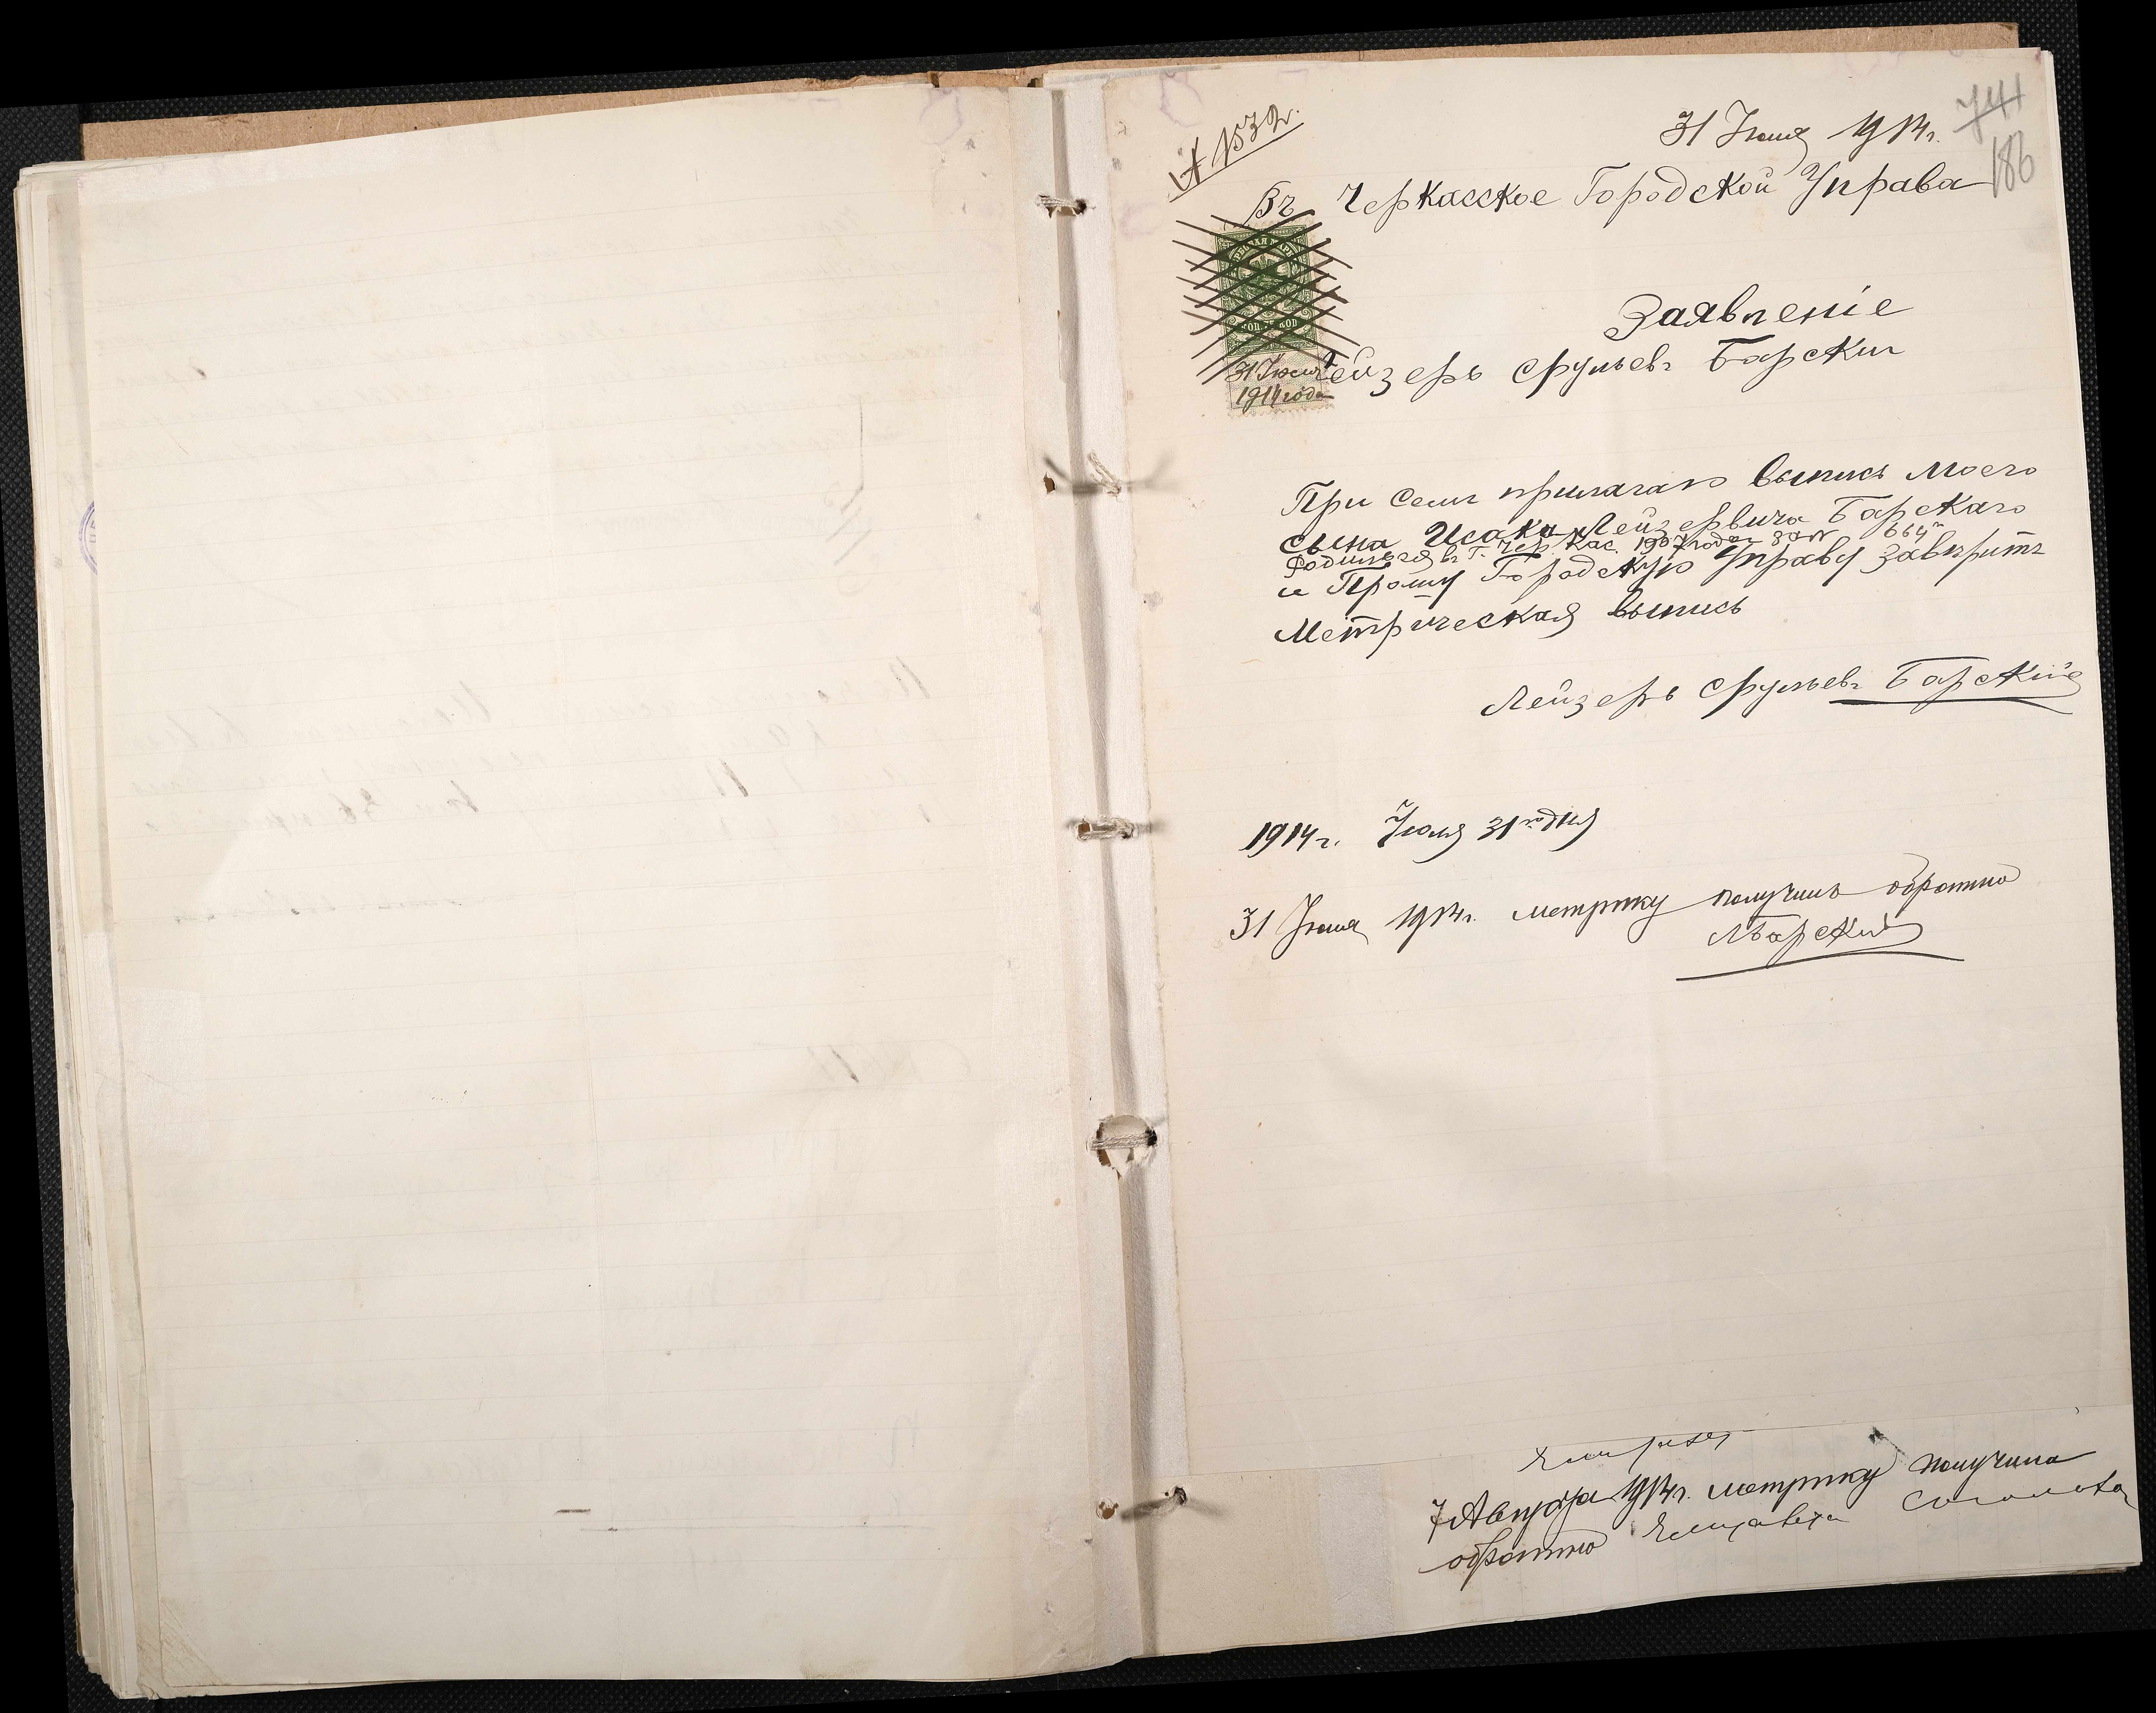 № 1532.
741
31 Июля 1914 г.
186
Въ Черкасское Городской Управа
31 Июля
1914 года
Заявленіе
Лейзеръ Срульевъ Барский
При семъ прилагаю выпись моего
сына Исака Лейзеровича Барскаго
Родился въ Г. Чер Кас. 1907 года за № 664
и Прошу Городскую Управу заверить
Метрическая выпись
Лейзеръ Срульевъ Барскій
1914 г. Июля 31го дня
31 Июля 1914 г. метрику получилъ обратно
ЛБарский
7 Августа 1914 г. метрику получила
обратно Елизавета Соколова